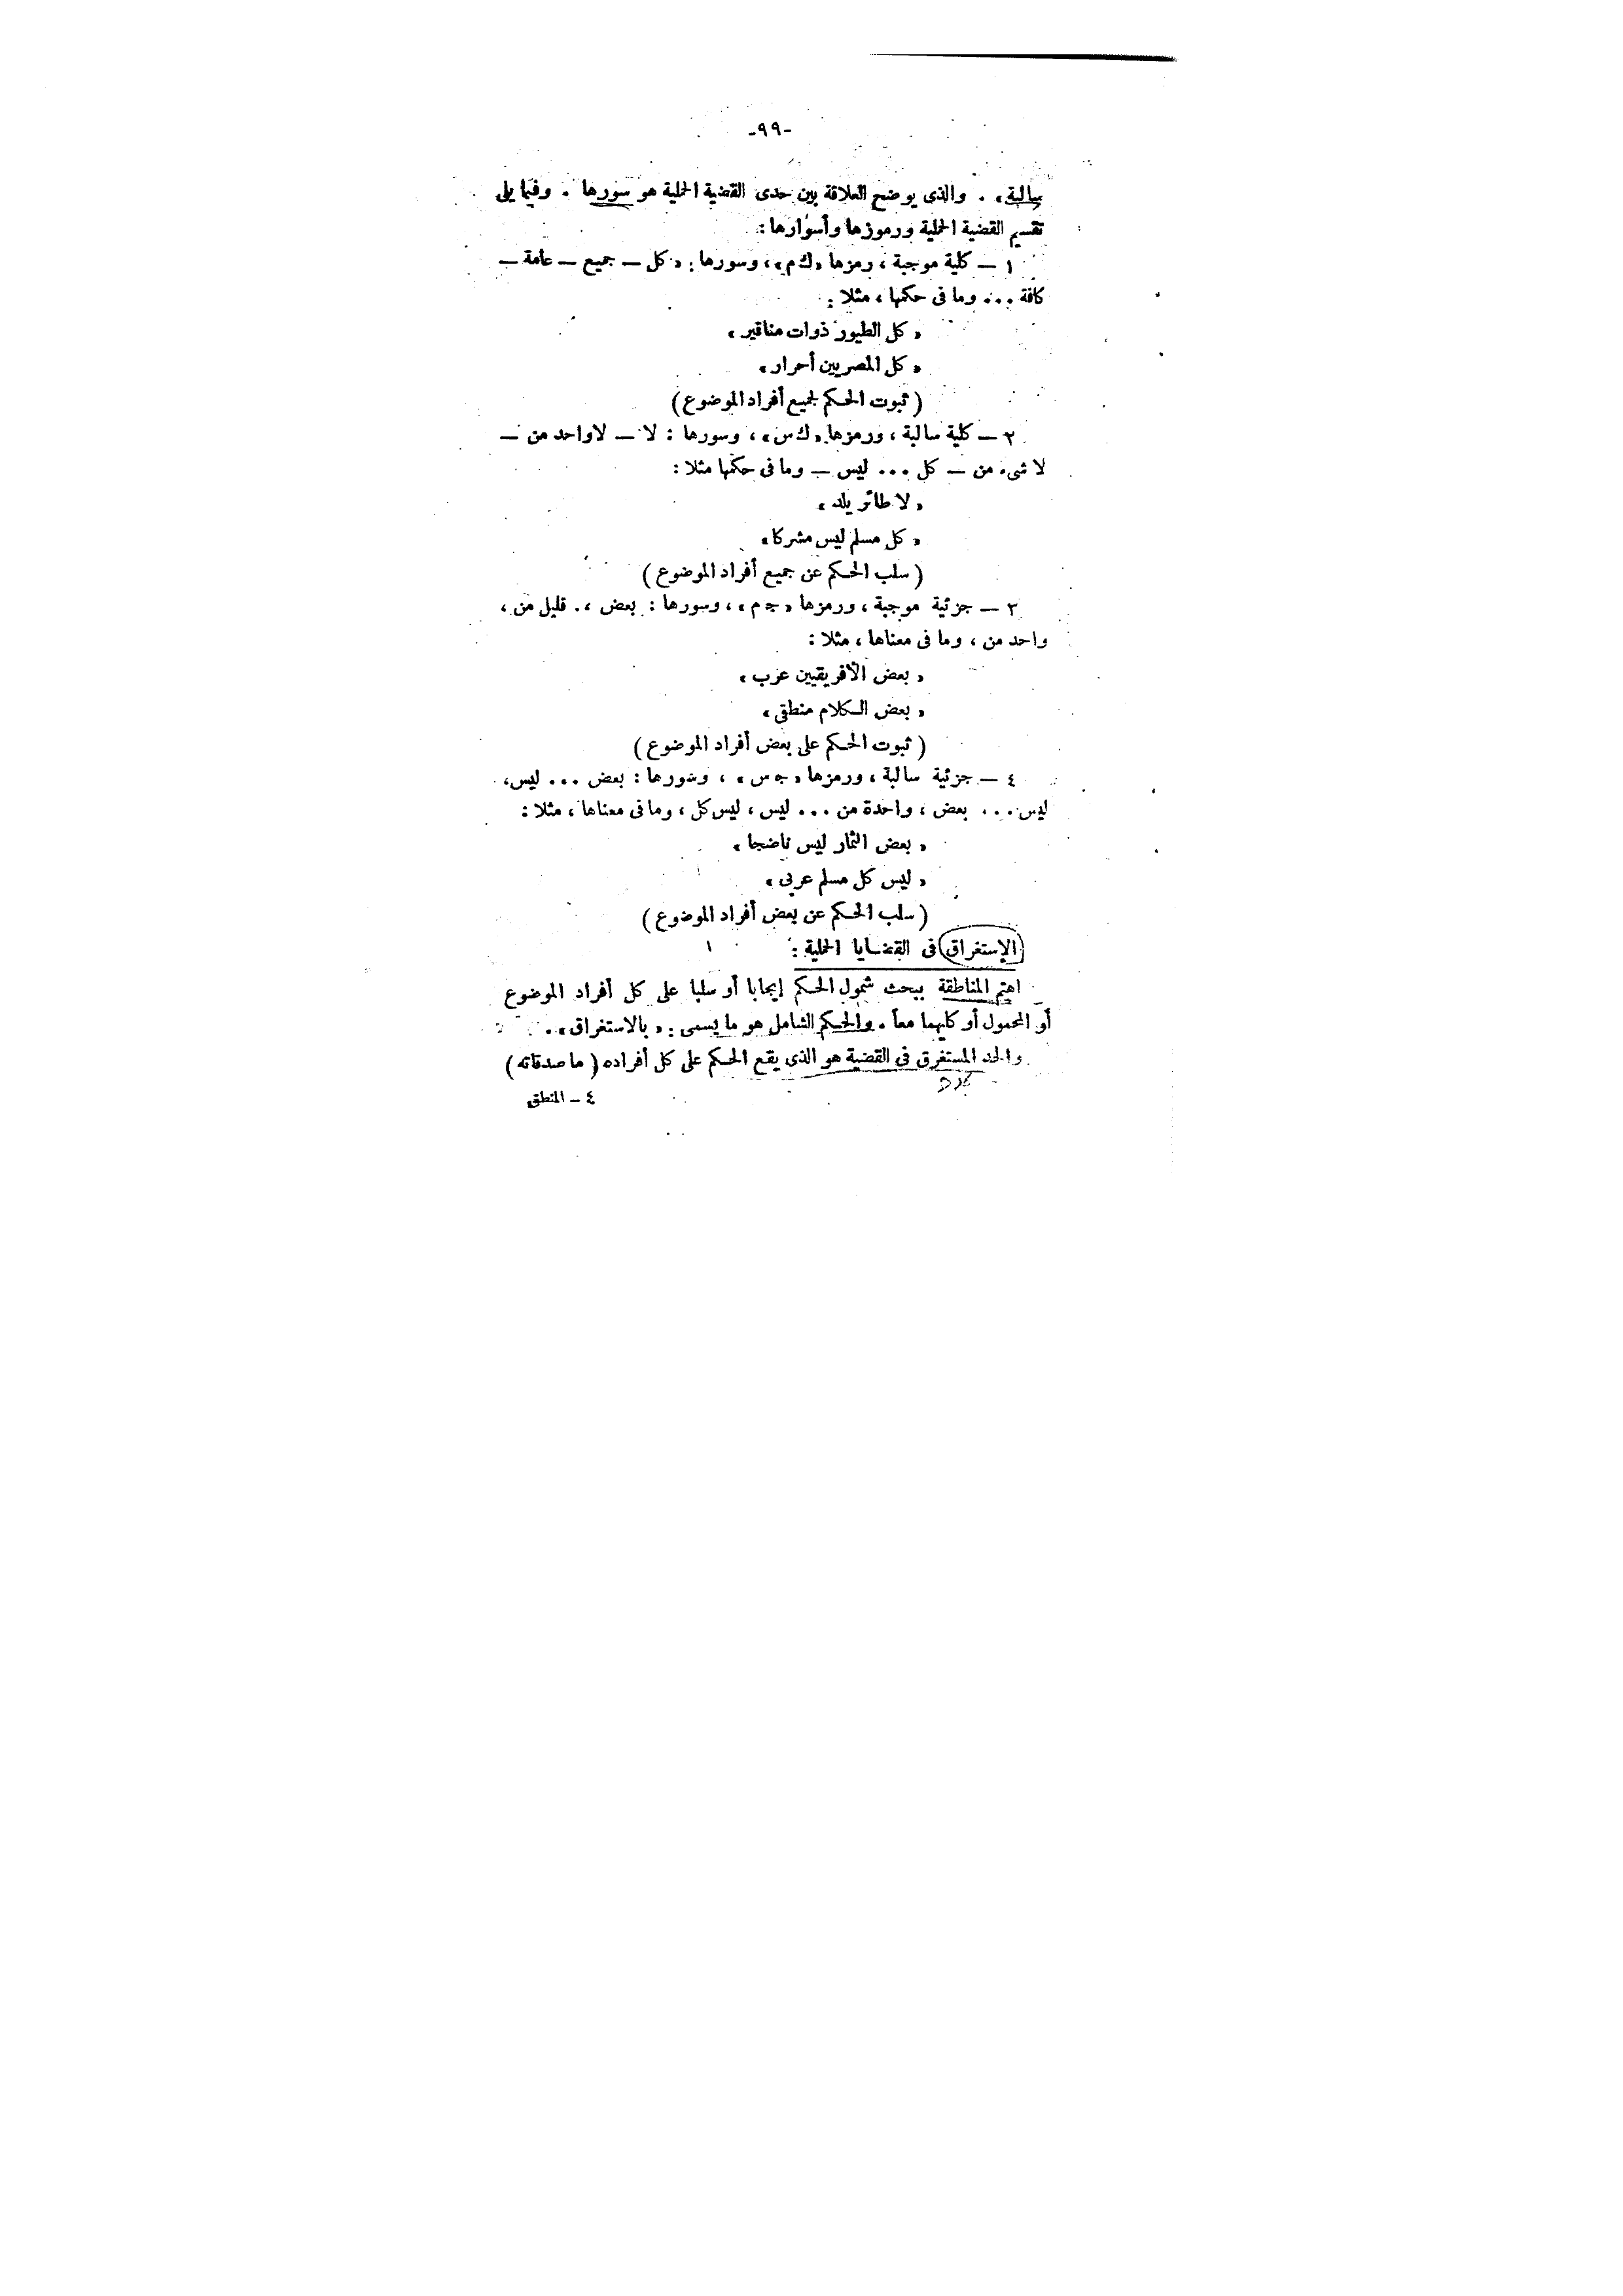 -٩٩-
سالبة» . والذى يوضح العلاقة بين حدى القضية الحملية هو سورها . وفيما يلى
تقسيم القضية الحملية ورموزها وأسوارها :
١ — كلية موجبة ، رمزها «ك م» ، وسورها : «كل — جميع — عامة —
كافة ... وما فى حكمها ، مثلا :
« كل الطيور ذوات مناقير »
« كل المصريين أحرار »
( ثبوت الحكم لجميع أفراد الموضوع )
٢ — كلية سالبة ، ورمزها «ك س» ، وسورها : لا — لا واحد من —
لا شىء من — كل ... ليس — وما فى حكمها مثلا :
« لا طائر يلد »
« كل مسلم ليس مشركا »
( سلب الحكم عن جميع أفراد الموضوع )
٣ — جزئية موجبة ، ورمزها « ج م » ، وسورها : بعض ، قليل من ،
واحد من ، وما فى معناها ، مثلا :
« بعض الأفريقيين عرب »
« بعض الكلام منطقى »
( ثبوت الحكم على بعض أفراد الموضوع )
٤ — جزئية سالبة ، ورمزها « ج س » ، وسورها : بعض ... ليس ،
ليس ... بعض ، واحدة من ... ليس ، ليس كل ، وما فى معناها ، مثلا :
« بعض الثمار ليس ناضجا »
« ليس كل مسلم عربى »
( سلب الحكم عن بعض أفراد الموضوع )
الإستغراق فى القضايا الحملية :
اهتم المناطقة ببحث شمول الحكم إيجابا أو سلبا على كل أفراد الموضوع
أو المحمول أو كليهما معاً . والحكم الشامل هو ما يسمى : « بالاستغراق » .
والحد المستغرق فى القضية هو الذى يقع الحكم على كل أفراده ( ما صدقاته )
٤ — المنطق